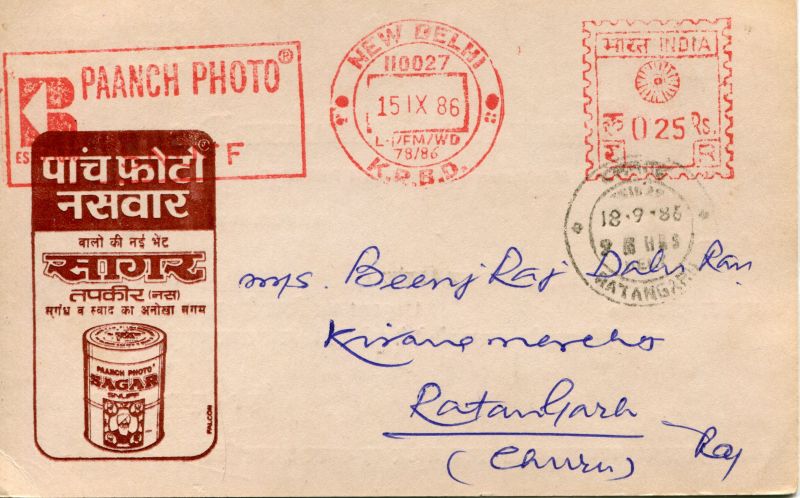 PAANCH PHOTO®
NEW DELHI
110027
15 IX 86
L-1/FM/WD
78/86
K.P.B.D.
भारत INDIA
0 25 Rs.
पांच फ़ोटो®
नसवार
वालो की नई भेंट
सागर
तपकीर (नस)
सुगंध व स्वाद का अनोखा संगम
PAANCH PHOTO
SAGAR
SNUFF
FALCON
18-9-86
RATANGARH
M/s. Beenj Raj Dalu Ram
Kirana merch
Ratangarh
(Churu) Raj